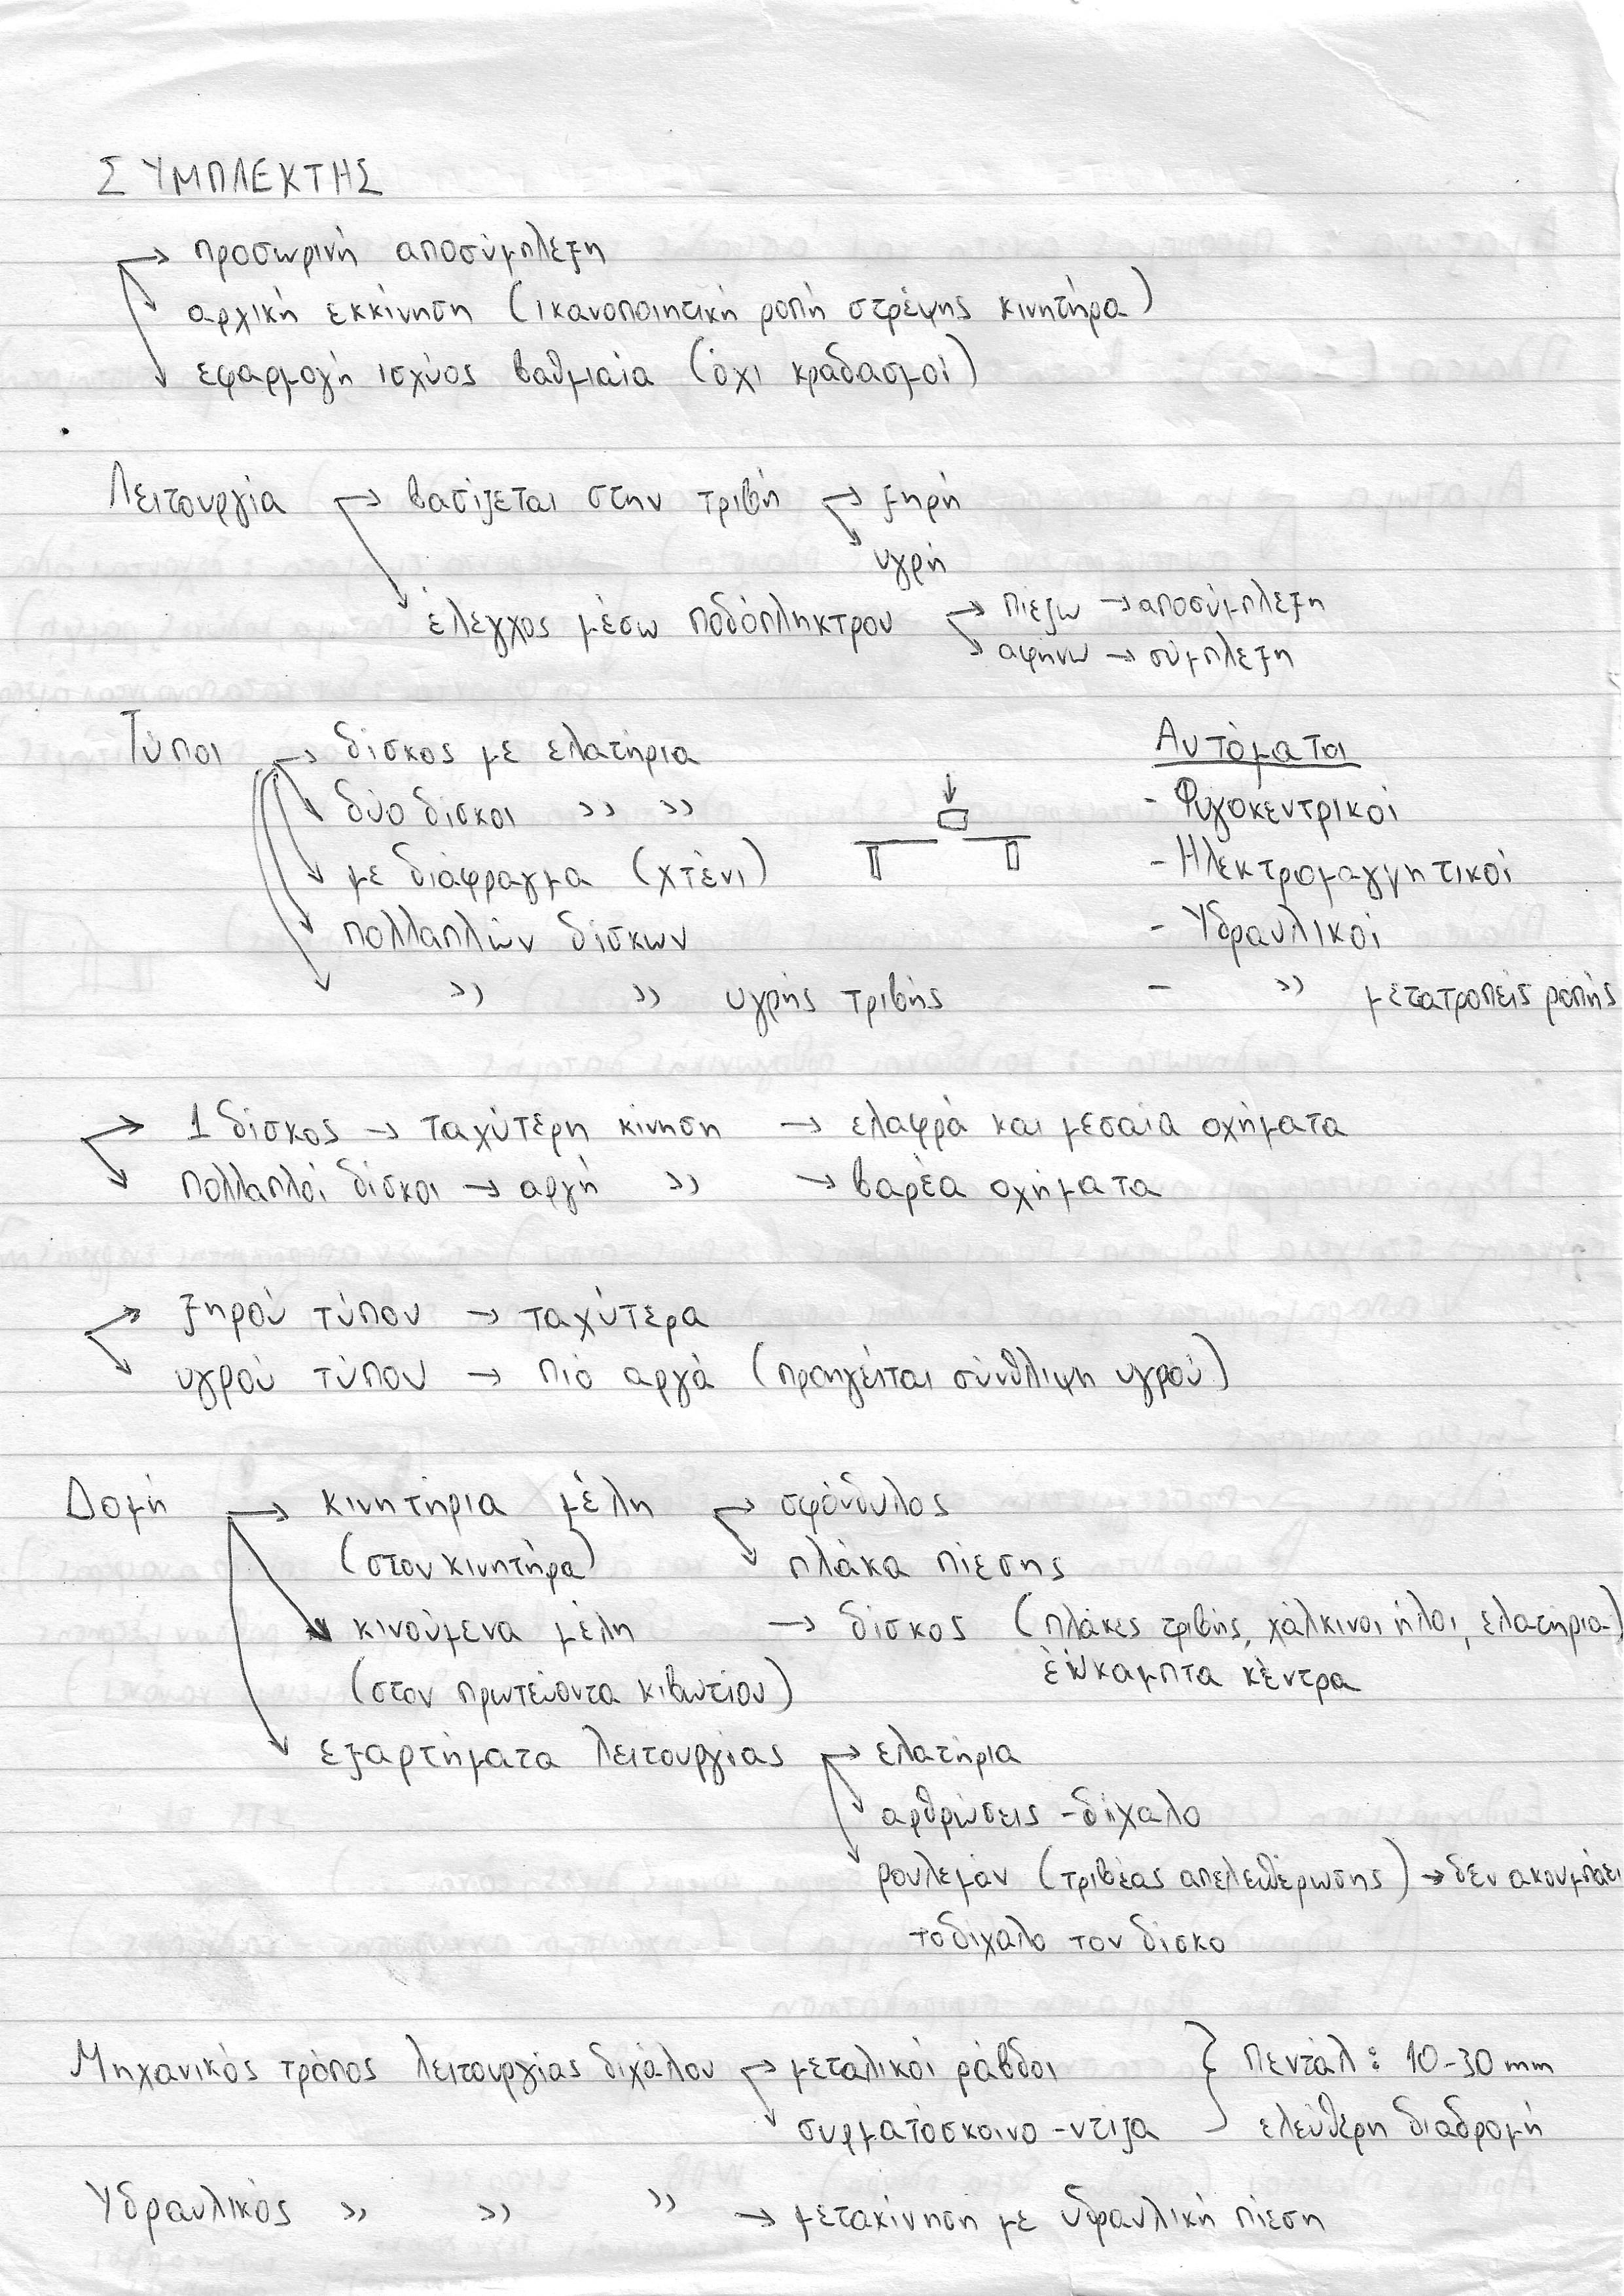 ΣΥΜΠΛΕΚΤΗΣ
→ προσωρινή αποσύμπλεξη
αρχική εκκίνηση (ικανοποιητική ροπή στρέψης κινητήρα)
εφαρμογή ισχύος βαθμιαία (όχι κραδασμοί)
Λειτουργία → βασίζεται στην τριβή → ξηρή
υγρή
έλεγχος μέσω ποδόπληκτρου → πιέζω → αποσύμπλεξη
αφήνω → σύμπλεξη
Τύποι → δίσκος με ελατήρια
δύο δίσκοι » »
με διάφραγμα (χτένι)
πολλαπλών δίσκων
» » υγρής τριβής
Αυτόματοι
- Φυγοκεντρικοί
- Ηλεκτρομαγνητικοί
- Υδραυλικοί
- » μετατροπείς ροπής
→ 1 δίσκος → ταχύτερη κίνηση → ελαφρά και μεσαία οχήματα
πολλαπλοί δίσκοι → αργή » → βαρέα οχήματα
→ ξηρού τύπου → ταχύτερα
υγρού τύπου → πιό αργά (προηγείται σύνθλιψη υγρού)
Δομή → κινητήρια μέλη → σφόνδυλος
(στον κινητήρα) πλάκα πίεσης
κινούμενα μέλη → δίσκος (πλάκες τριβής, χάλκινοι ήλοι, ελατήρια)
(στον πρωτεύοντα κιβωτίου) εύκαμπτα κέντρα
εξαρτήματα λειτουργίας → ελατήρια
αρθρώσεις - δίχαλο
ρουλεμάν (τριβέας απελευθέρωσης) → δεν ακουμπάει
το δίχαλο τον δίσκο
Μηχανικός τρόπος λειτουργίας διχάλου → μεταλικοί ράβδοι } πεντάλ: 10-30 mm
συρματόσκοινο - ντίζα ελεύθερη διαδρομή
Υδραυλικός » » » → μετακίνηση με υδραυλική πίεση